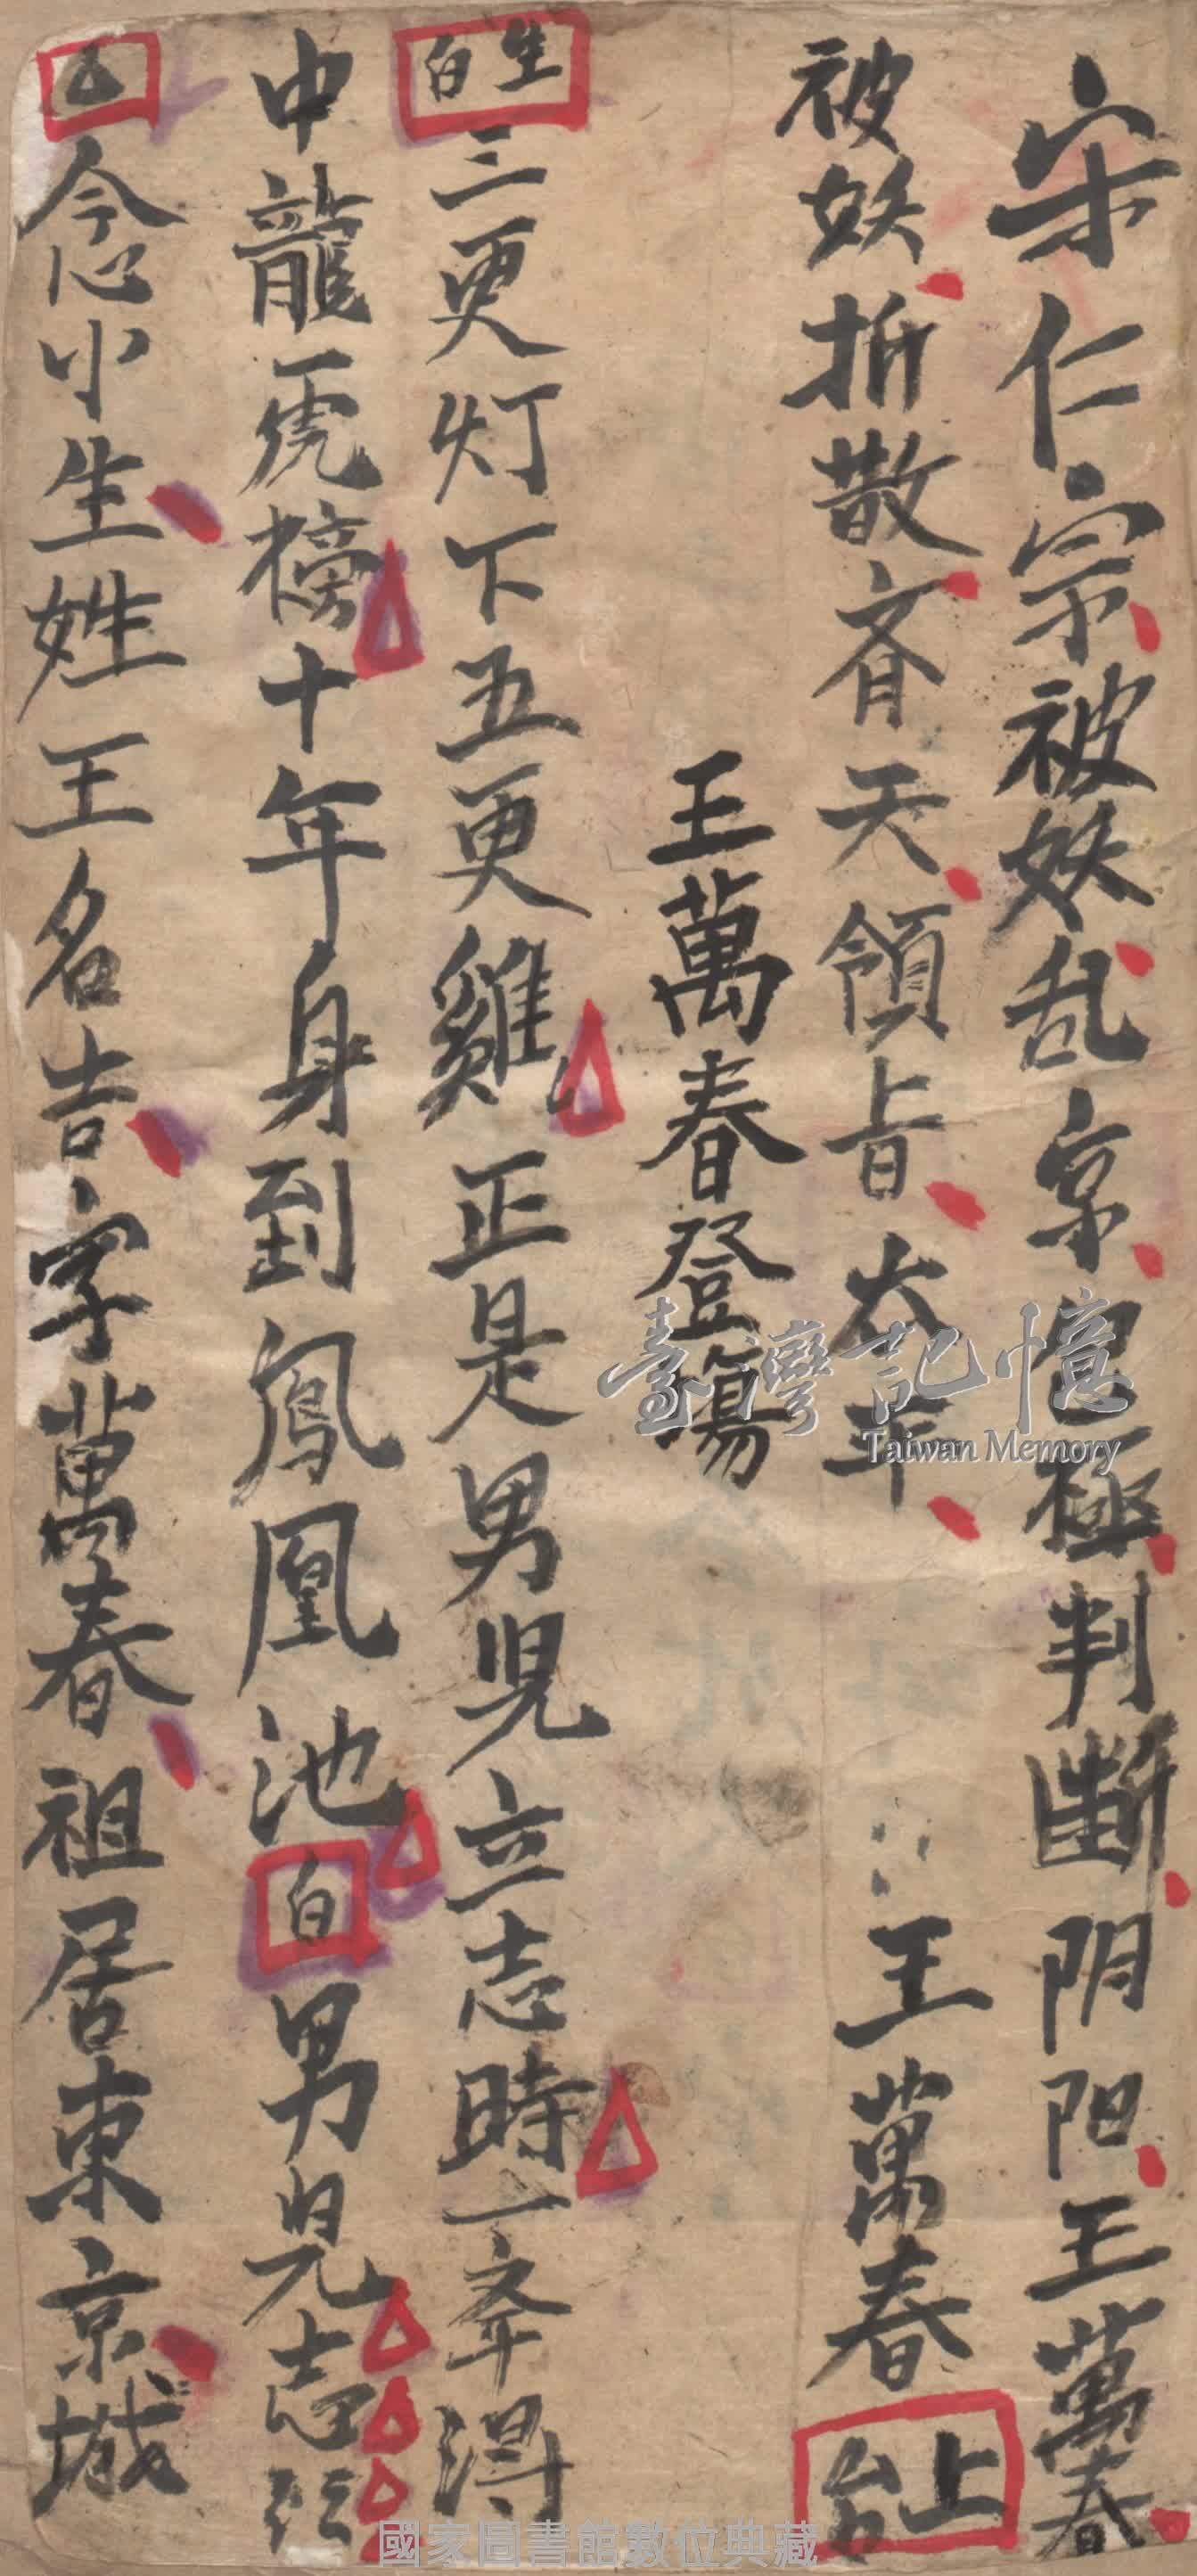 宋仁宗被妖乱京包極判断阴阳王萬春
被妖拆散齐天領旨大羊王萬春上台
王萬春登場
生白三更灯下五更雞正是男児立志時一举淂
中龍虎榜十年身到鳳凰池白男児志
念小生姓王名吉字萬春祖居東京城
臺灣記憶
Taiwan Memory
國家圖書館數位典藏